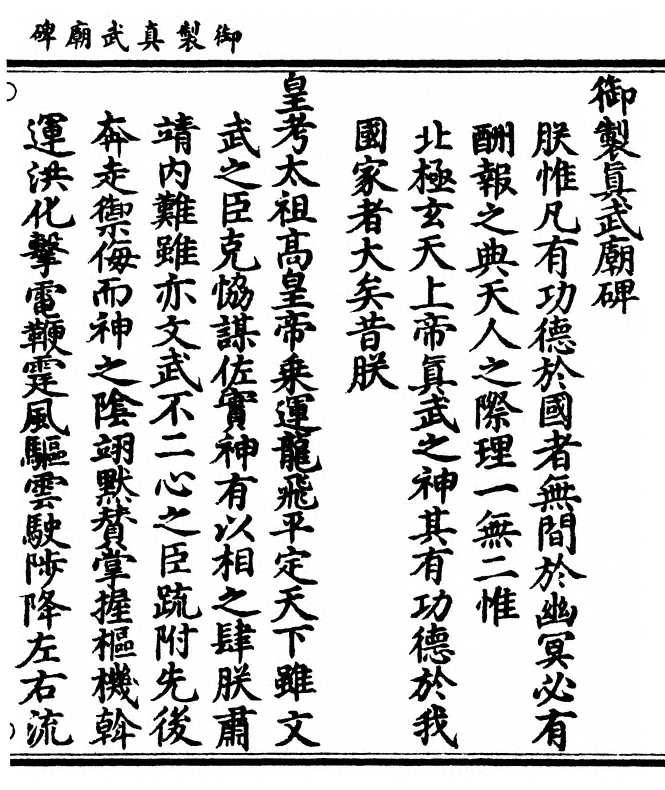 御製真武廟碑
御製眞武廟碑
朕惟凡有功德於國者無間於幽冥必有
酬報之典天人之際理一無二惟
北極玄天上帝眞武之神其有功德於我
國家者大矣昔朕
皇考太祖高皇帝乗運龍飛平定天下雖文
武之臣克恊謀佐實神有以相之肆朕肅
靖内難雖亦文武不二心之臣疏附先後
奔走禦侮而神之隂翊默贊掌握樞機斡
運洪化擊電鞭霆風驅雲駛陟降左右流